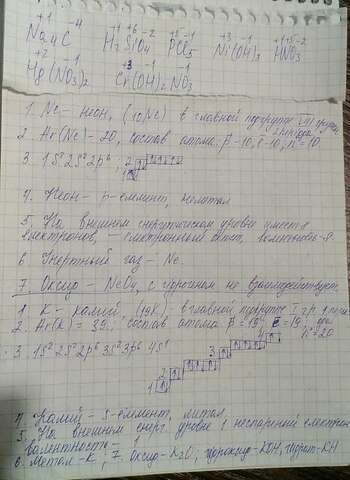 +1 -4 +1 +6 -2 +5 -1 +3 -1 +1 +5 -2
Na4C H2SiO4 PCl5 Ni(OH)3 HNO3
+2 -1 +3 -1 -1
Hg(NO3)2 Cr(OH)2NO3
1. Ne - неон, (10Ne) в главной подгруппе VIII группы
2 периода
2. Ar(Ne) = 20, состав атома: p-10, e-10, n=10
3. 1s² 2s² 2p⁶
4. Неон - p-елемент, неметал
5. На внешнем енергетическом уровне
електронов, - електронный октет,
6. Инертный газ - Ne.
7. Оксид - NeO4, с водородом не взаимодействует.
1. К - калий, (19К), в главной подгруппе I гр. 4
2. Ar(K) = 39, состав атома p = 19, e = 19, n = 20
3. 1s² 2s² 2p⁶ 3s² 3p⁶ 4s¹
4. Калий - s-елемент, метал.
5. На внешнем енерг. уровне 1 неспарений електрон
валентность - 1
6. Метал - К, 7. Оксид - К2О, гидроксид - КОН, гидрит - КН